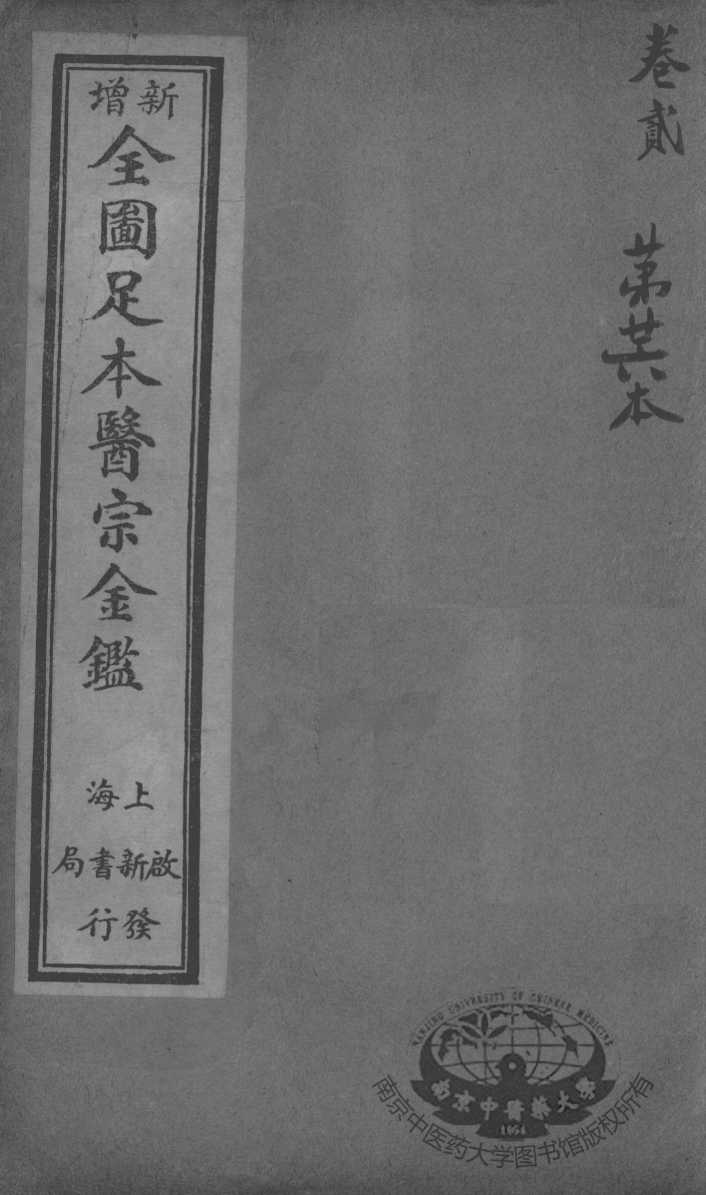 卷貳
第廿六本
新增
全圖足本醫宗金鑑
上海
啟新書局
發行
NANJING UNIVERSITY OF CHINESE MEDICINE
南京中醫藥大學
1954
南京中医药大学图书馆版权所有